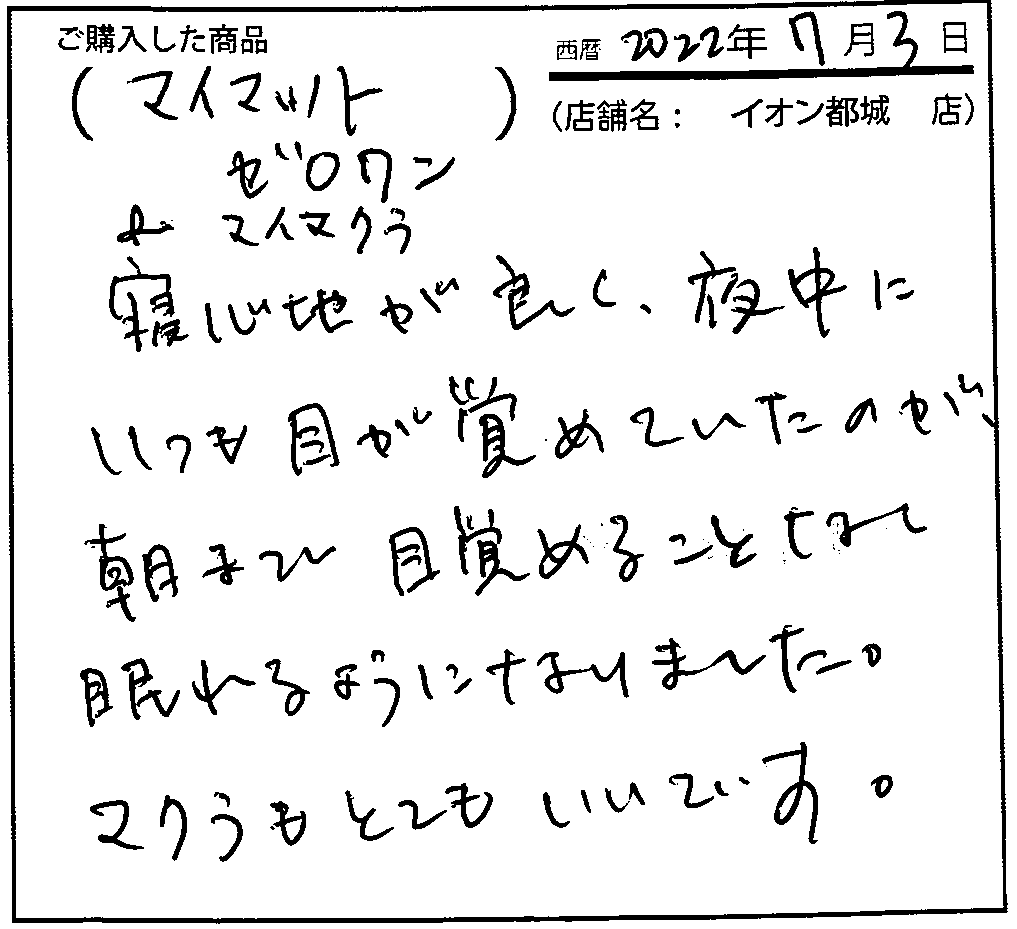 ご購入した商品
西暦 2022年 7月 3日
(マイマット)
(店舗名: イオン都城 店)
ゼロワン
マイマクラ
寝心地が良く、夜中に
いつも目が覚めていたのが、
朝まで目覚めることなく
眠れるようになりました。
マクラもとてもいいです。